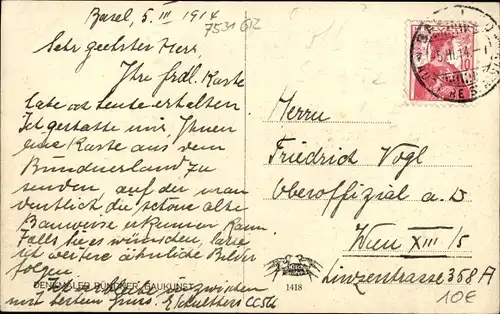 Basel, 5. III 1914
7531 GR
Sehr geehrter Herr,
Ihre frdl. Karte
habe heute erhalten
Ich gestatte mir, Ihnen
eine Karte aus dem
Bündnerland zu
senden, auf der man
deutlich die schöne alte
Bauweise erkennen kann
Falls Sie es wünschen, lasse
ich weitere ähnliche Bilder
folgen.
DENKMÄLER BÜNDNER BAUKUNST
Ich verbleibe inzwischen
mit bestem Gruss.
Herrn
Friedrich Vogl
Oberoffizial a. D
Wien XIII/5
Linzerstrasse 358 A
1418
10€